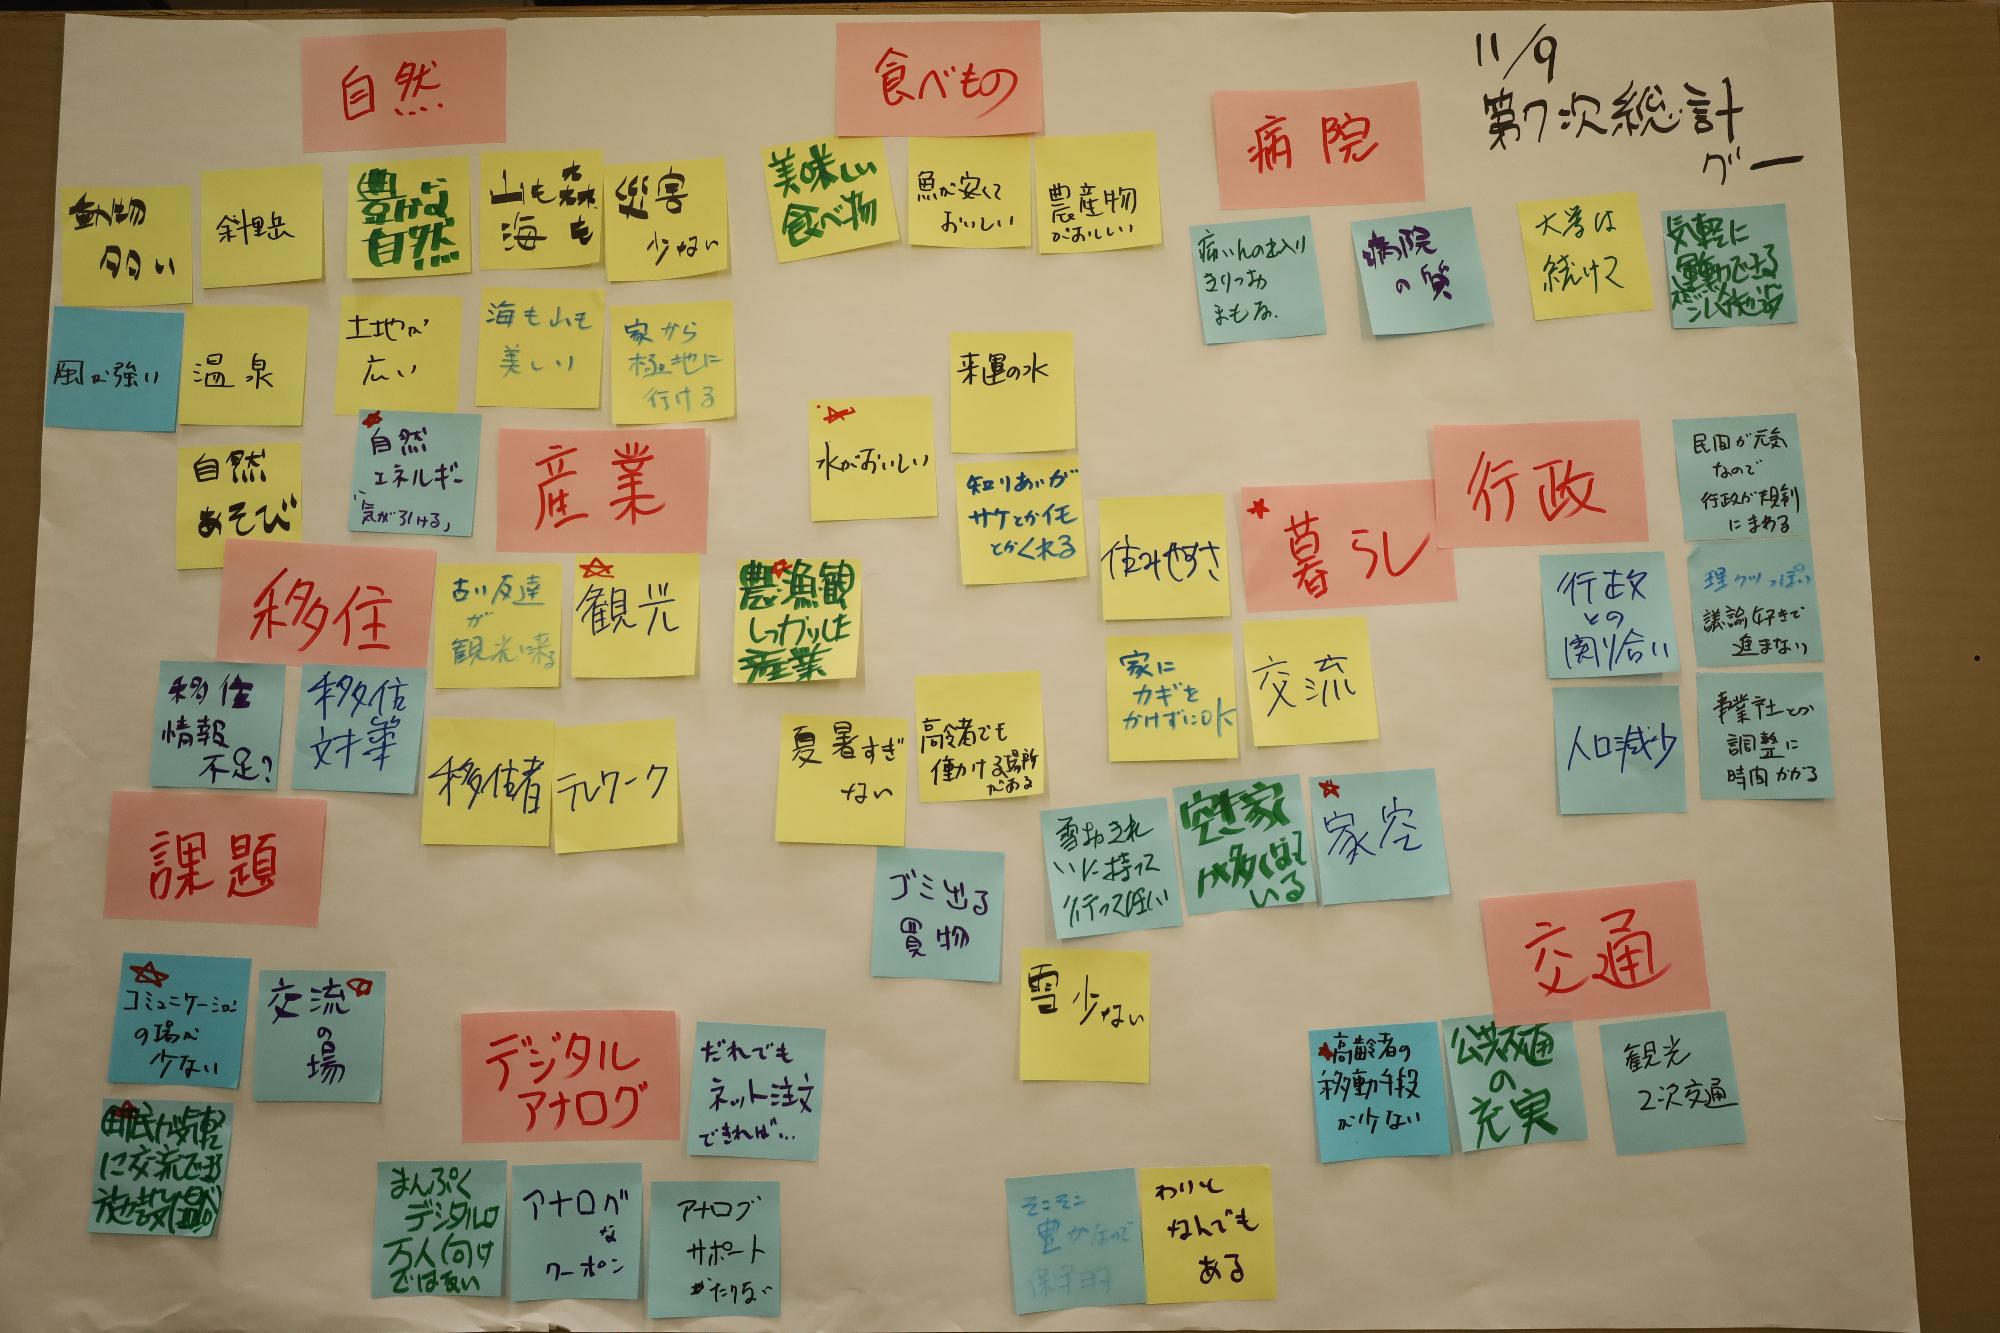 11/9
第7次総計
グー
自然
動物
多い
斜里岳
豊かな
自然
山も森も
海も
災害
少ない
風が強い
温泉
土地が
広い
海も山も
美しい
家から
極地に
行ける
自然
あそび
自然
エネルギー
「気が引ける」
食べもの
美味しい
食べ物
魚が安くて
おいしい
農産物
がおいしい
来運の水
水がおいしい
知りあいが
サケとかイモ
とかくれる
病院
病いんの出入り
きりつお
まもな.
病院
の質
大学は
続けて
気軽に
運動できる
産業
古い友達
が
観光に来る
観光
農漁観
しっかりした
産業
移住
移住
情報
不足?
移住
対策
移住者
テレワーク
夏暑すぎ
ない
高齢者でも
働ける場所
がある
暮らし
住みやすさ
家に
カギを
かけずにOK
交流
雪おきれ
いに持って
行って欲しい
空き家
が多くなって
いる
家空
ゴミ出る
買物
雪少ない
行政
民間が元気
なので
行政が規制
にまわる
行政
との
関り合い
理クツっぽい
議論好きで
進まない
人口減少
事業社との
調整に
時間かかる
課題
コミュニケーション
の場が
少ない
交流
の
場
町民が気軽
に交流できる
施設
デジタル
アナログ
だれでも
ネット注文
できれば…
まんぷく
デジタルは
万人向け
ではない
アナログ
な
クーポン
アナログ
サポート
がたりない
交通
高齢者の
移動手段
が少ない
公共交通
の
充実
観光
2次交通
そこそこ
豊かなので
保守的
わりと
なんでも
ある